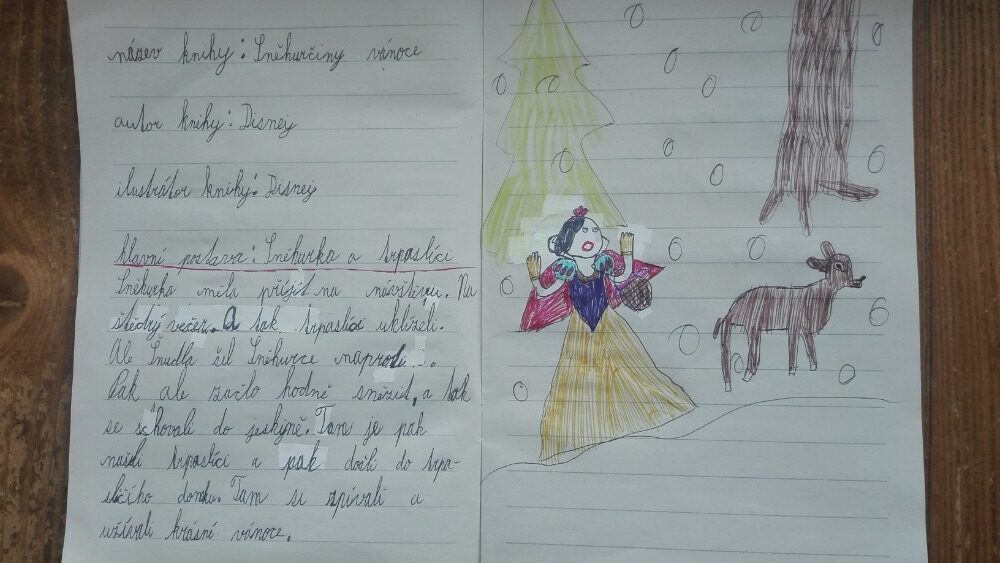 název knihy: Sněhurčiny vánoce
autor knihy: Disney
ilustrátor knihy: Disney
hlavní postava: Sněhurka a trpaslíci
Sněhurka měla přijít na návštěvu. Na
štědrý večer. a tak trpaslíci uklízeli.
Ale Šmudla šel Sněhurce naproti.
Pak ale začlo hodně sněžit, a tak
se schovali do jeskyně. Tam je pak
našli trpaslíci a pak došli do trpa-
sličího domku. Tam si zpívali a
užívali krásné vánoce.